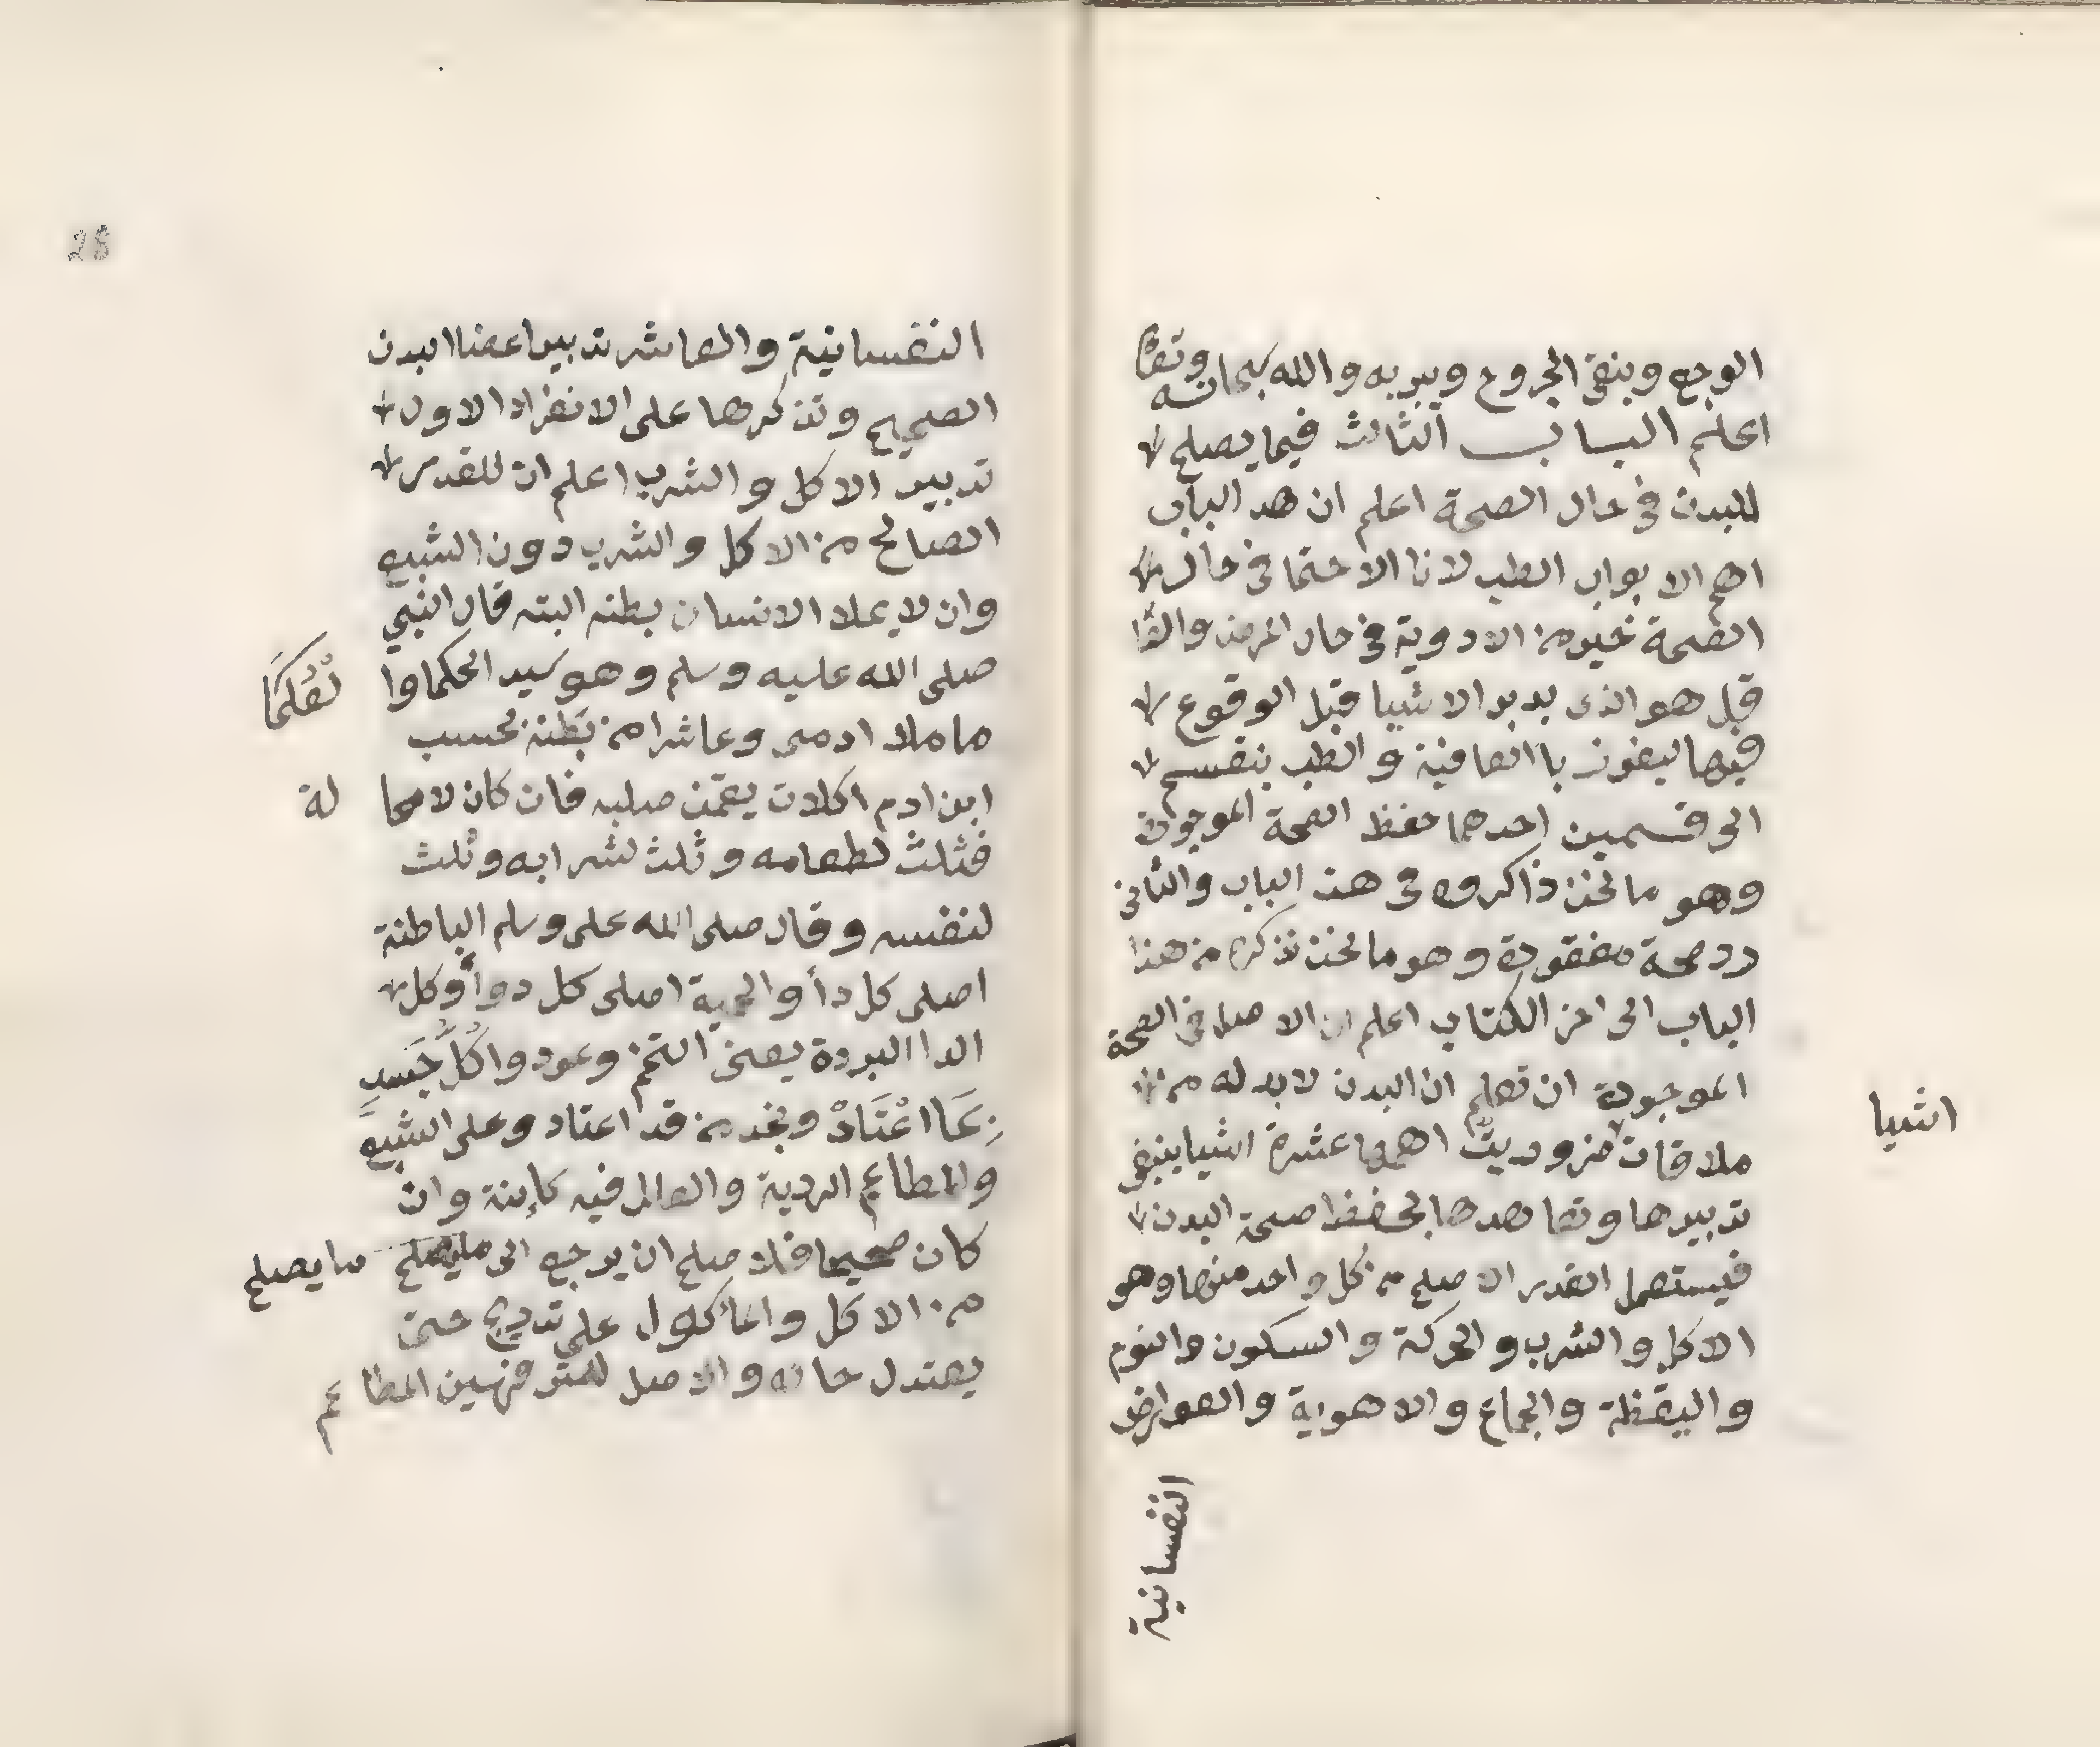 الوجع وينقى الجروح ويبريه والله سبحانه وتعا
اعلم الباب الثالث فيما يصلح
للبدن في حال الصحة اعلم ان هد الباب
اهم الابواب الطب لانا الاحتما في حال
الصحة خير من الادوية في حال المرض والعا
قل هو الذى يدبر الاشيا قبل الوقوع
فيها ليفوز باالعافية والطب ينقسم
الى قسمين احدهما حفظ الصحة الموجودة
وهو ما نحن ذاكروه في هذ الباب والثاني
رد صحة مفقودة وهو ما نحن نذكره من هذا
الباب الى اخر الكتاب اعلم ان الاصل في الصحة
الموجودة ان تعلم ان البدن لا بد له من
ملاقات ضروريت اهمها عشرة اشيا ينبغي
اشيا
تدبيرها وتعاهدها لحفظ صحة البدن
فيستعمل القدر الاصلح من كل واحد منها وهو
الاكل والشرب والحركة والسكون والنوم
واليقظة والجماع والاهوية والعوارض
النفسانية
28
النفسانية والعاشر تدبير اعضا البدن
الصحيح ونذكرها على الانفراد الاول
تدبير الاكل والشرب اعلم ان للقدر
الصالح من الاكل والشرب دون الشبع
وان لا يملا الانسان بطنه البته قال النبي
صلى الله عليه وسلم وهو سيد الحكما وا
لعلما
ما ملا ادمى وعاشرا من بطنه بحسب
ابن ادم اكلات يقمن صلبه فان كان لا محا
لة
فثلث لطعامه وثلث لشرابه وثلث
لنفسه وقال صلى الله على وسلم الباطنة
اصلى كل دأ والحمية اصلى كل دوأ وكل
الدا البردة يعنى التخم وعودوا كل جسد
بما اعتاد ونجد من قد اعتاد وعلى الشبع
والمطاعم الردية والعالم فيه كاينة وان
كان صحيحا فلا صلح ان يرجع الى ما يصلح
ما يصلح
من الاكل والماكول على تدريج حتى
يعتدل حاله والاصل المطاعم